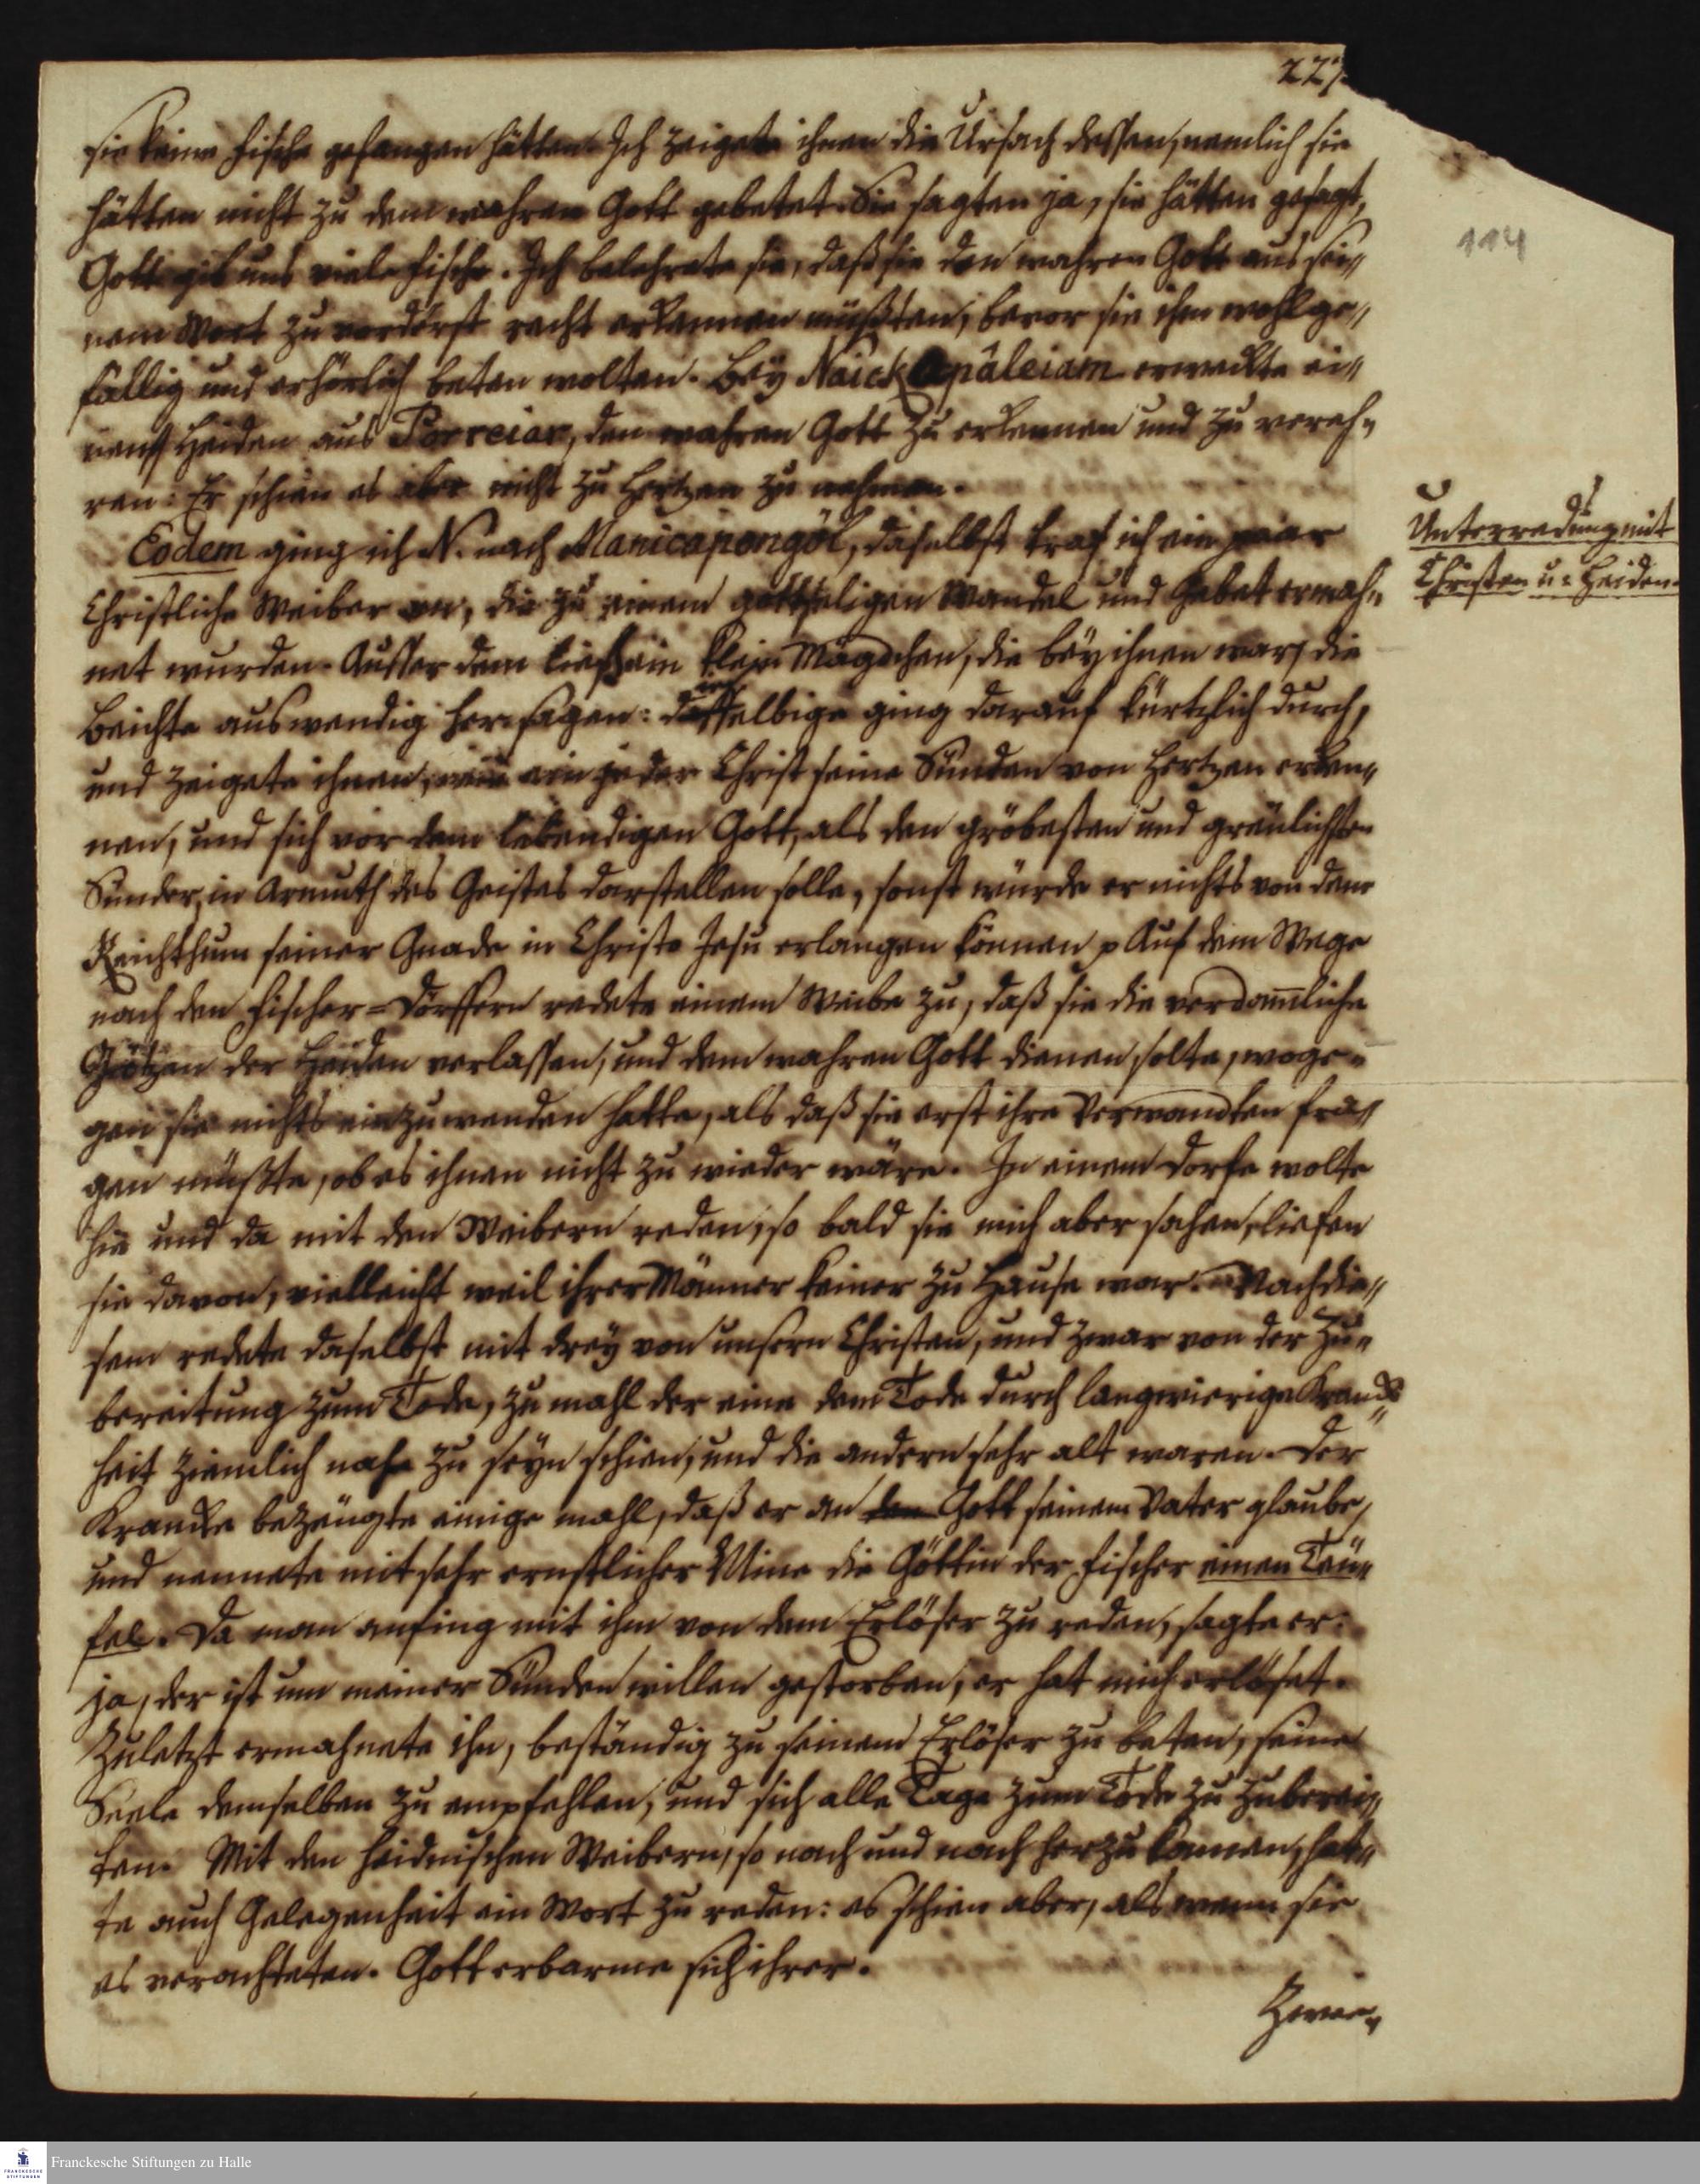 227.
114
sie keine Fische gefangen hätten. Ich zeigete ihnen die Ursach dessen, nemlich sie
hätten nicht zu dem wahren Gott gebetet. Sie sagten ja, sie hätten gesagt,
Gott gib uns viele Fische. Ich belehrete sie, daß sie den wahren Gott aus sei„
nem Wort zuvorderst recht erkennen müßten, bevor sie ihm wohlge„
fällig und erhörlich beten wolten. Bey Naickapâleiam erweckte ei„
nen Heiden aus Porreiar, den wahren Gott zu erkennen und zu vereh„
ren: Er schien es aber nicht zu Hertzen zu nehmen.
Unterredung mit
Christen u: Heiden.
Eodem ging ich N. nach Manicapongöl, daselbst traf ich ein paar
Christliche Weiber an, die zu einem gottseligen Wandel und Gebet ermah„
net wurden. Ausser dem ließ ein klein Mägdchen, die bey ihnen war, die
Beichte auswendig hersagen: dasselbige ging darauf kürtzlich durch,
und zeigete ihnen, wie ein jeder Christ seine Sünden von Hertzen erken„
nen, und sich vor dem lebendigen Gott, als den gröbesten und greulichsten
Sünder, in Armuth des Geistes darstellen solle, sonst würde er nichts von dem
Reichthum seiner Gnade in Christo Jesu erlangen können p Auf dem Wege
nach den Fischer-Dörffern redete einem Weibe zu, daß sie die verdam̄liche
Götzen der Heiden verlassen, und dem wahren Gott dienen solte, woge„
gen sie nichts einzuwenden hatte, als daß sie erst ihre Verwandten fra„
gen müßte, ob es ihnen nicht zu wieder wäre. In einem Dorfe wolte
hie und da mit den Weibern reden, so bald sie mich aber sahen, liefen
sie davon, vielleicht weil ihrer Männer keiner zu Hause war. Nach die„
sem redete daselbst mit drey von unsern Christen, und zwar von der Zu„
bereitung zum Tode, zumahl der eine dem Tode durch langwierige Kranck„
heit ziemlich nahe zu seyn schien, und die andern sehr alt waren. Der
Krancke bezeugte einige mahl, daß er an Gott seinem Vater glaube,
und nennete mit sehr ernstlicher Mine die Göttin der Fischer einen Teu„
fel. Da man anfing mit ihm von dem Erlöser zu reden, sagte er:
ja, der ist um meiner Sünden willen gestorben, er hat mich erlöset.
Zuletzt ermahnete ihn, beständig zu seinem Erlöser zu beten, seine
Seele demselben zu empfehlen, und sich alle Tage zum Tode zu zuberei„
ten. Mit den heidnischen Weibern, so nach und nach herzu kamen, hat„
te auch Gelegenheit ein Wort zu reden: es schien aber, als wenn sie
es verachteten. Gott erbarme sich ihrer.
Franckesche Stiftungen zu Halle